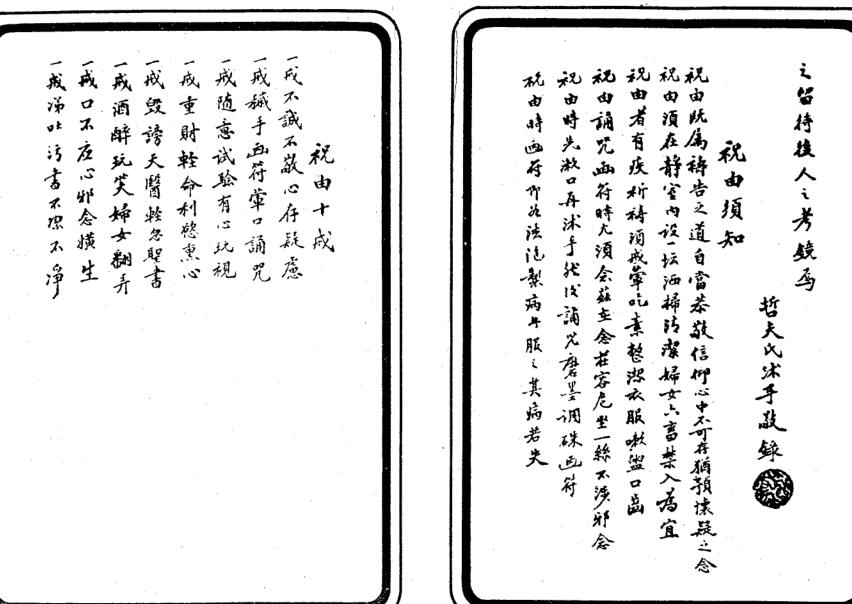 之留待後人之考鏡焉
哲夫氏沐手敬錄
祝由須知
祝由既属祷告之道自當恭敬信仰心中不可存猶預懷疑之念
祝由須在靜室內设一坛洒掃清潔婦女六畜禁入為宜
祝由者有疾祈祷須戒葷吃素整潔衣服嗽盥口齒
祝由誦咒画符時尤須念兹在念莊容危坐一絲不涉邪念
祝由時先漱口再沐手然後誦咒磨墨调硃画符
祝由時画符即为法泡製病者服之其病若失
祝由十戒
一戒不誠不敬心存疑慮
一戒穢手画符葷口誦咒
一戒随意试驗有心玩視
一戒重財輕命利慾熏心
一戒毁謗天醫輕忽聖書
一戒酒醉玩笑婦女翻弄
一戒口不应心邪念橫生
一戒涕吐污書不潔不淨